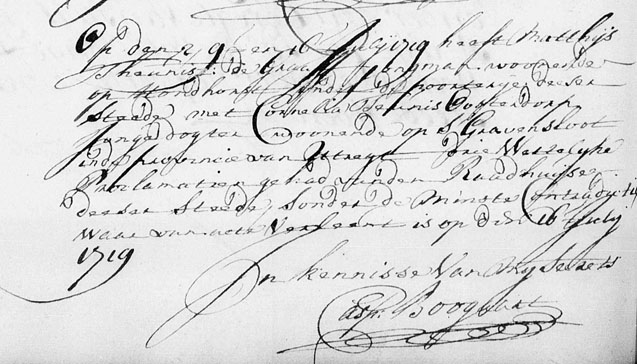 Op den 2, 9 en 16 Julij 1719 heeft Matthijs
Theunisz. de Graaf Jongman woonende
op Hondhorst onder de poorterije deeser
Steede met Cornelia Teunis Oosterdorp
Jonge dogter woonende op 's Gravensloot
inde provincie van Uttregt drie Wettelijke
Proclamatien gehad vanden Raadhuijse
deeser Steede, sonder de Minste Contradictie
waar van acte Verleent is op den 16 July
1719
In kennisse Van mij Secrets
Boogaart